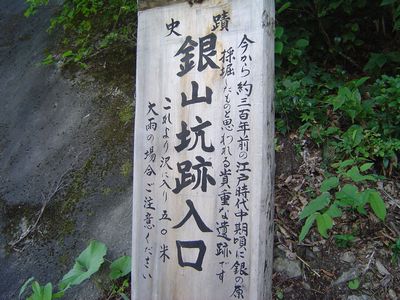 史蹟
今から約三百年前の江戸時代中期頃に銀の原
採堀したものと思われる貴重な遺跡です
銀山坑跡入口
これより沢に入り五〇米
大雨の場合ご注意ください